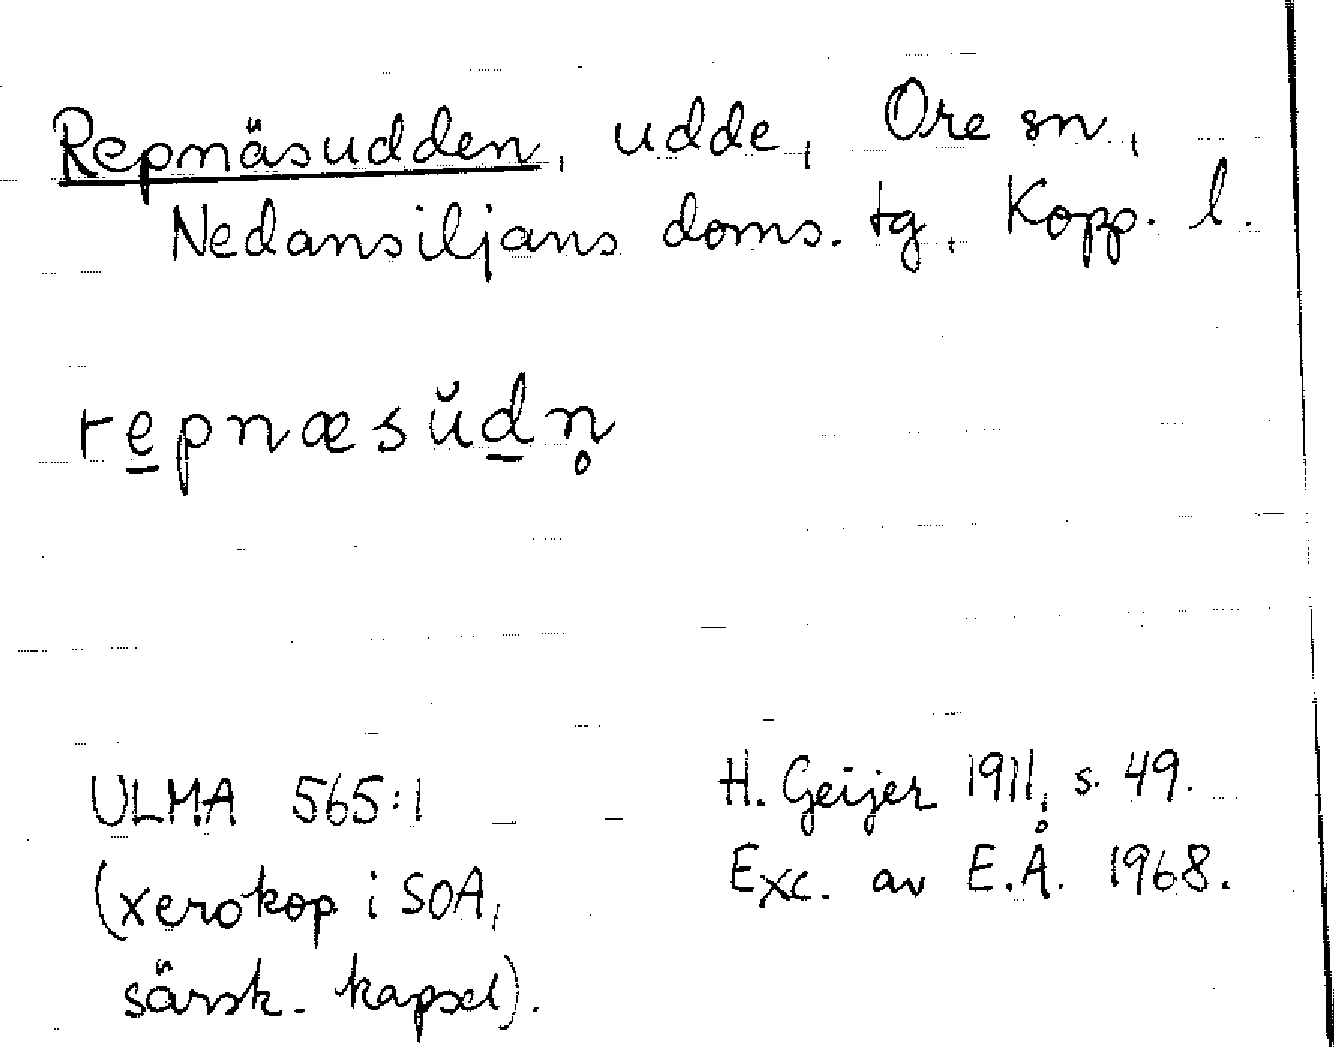 Repnäsudden, udde, Ore sn,
Nedansiljans doms. tg. Kopp. l.
re̲pnæsŭd̲n̥
ULMA 565:1
(xerokop i SOA,
särsk. kapsel).
H. Geijer 1911, s. 49.
Exc. av E.Å. 1968.